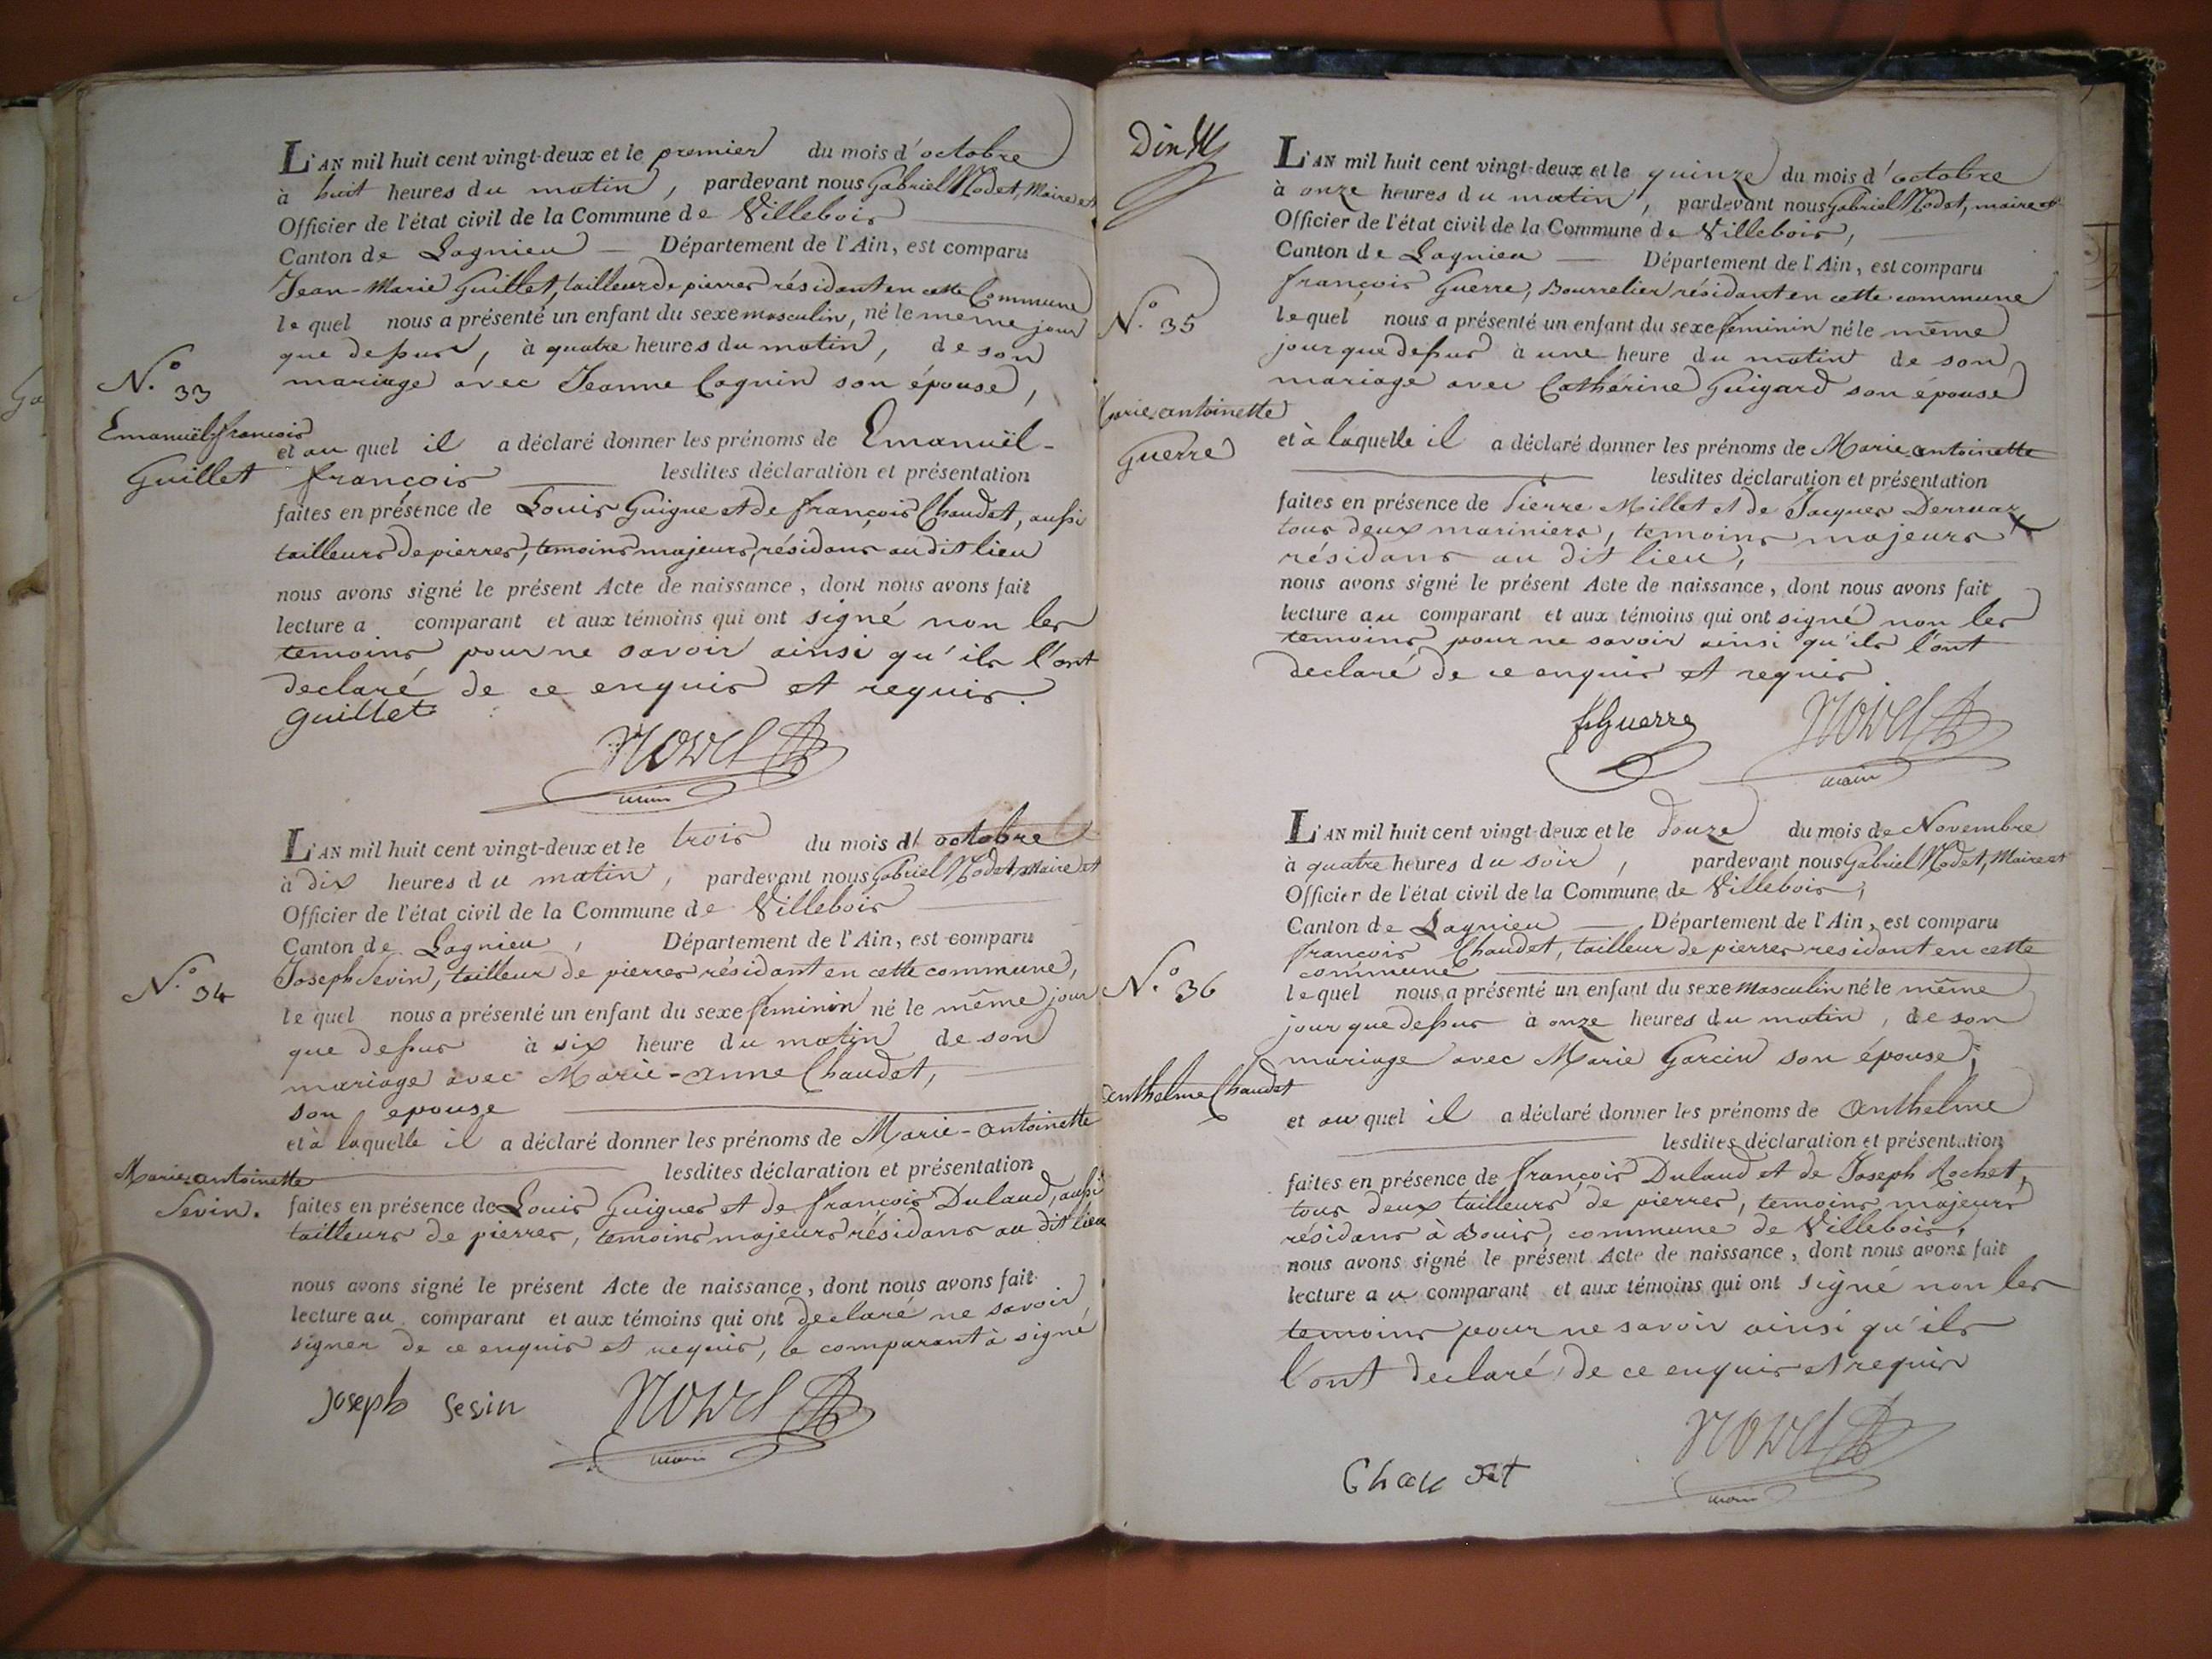 L'AN mil huit cent vingt-deux et le premier du mois d'octobre
à huit heures du matin, pardevant nous Gabriel Nodet, Maire et
Officier de l'état civil de la Commune de Villebois
Canton de Lagnieu — Département de l'Ain, est comparu
Jean-Marie Guillet, tailleur de pierres résidant en cette Commune
le quel nous a présenté un enfant du sexe masculin, né le même jour
que dessus, à quatre heures du matin, de son
mariage avec Jeanne Cognin son épouse,
N.° 33
Emanuël françois
Guillet
et au quel il a déclaré donner les prénoms de Emanuël-
françois lesdites déclaration et présentation
faites en présence de Louis Guigue et de françois Chaudet, aussi
tailleurs de pierres, temoins majeurs, résidans au dit lieu
nous avons signé le présent Acte de naissance, dont nous avons fait
lecture a comparant et aux témoins qui ont signé non les
temoins pour ne savoir ainsi qu'ils l'ont
declaré de ce enquis et requis.
Guillet
maire
L'AN mil huit cent vingt-deux et le trois du mois d'octobre
à dix heures du matin, pardevant nous Gabriel Nodet, Maire et
Officier de l'état civil de la Commune de Villebois
Canton de Lagnieu, Département de l'Ain, est comparu
Joseph Sevin, tailleur de pierres résidant en cette commune,
N.° 34
le quel nous a présenté un enfant du sexe feminin né le même jour
que dessus à six heure du matin de son
mariage avec Marie-anne Chaudet,
son epouse
et à laquelle il a déclaré donner les prénoms de Marie-antoinette
lesdites déclaration et présentation
Marie antoinette
Sevin.
faites en présence de Louis Guigues et de françois Dulaud, aussi
tailleurs de pierres, temoins majeurs résidans au dit lieu
nous avons signé le présent Acte de naissance, dont nous avons fait
lecture au comparant et aux témoins qui ont declaré ne savoir
signer de ce enquis et requis, le comparant à signé
Joseph Sevin
maire
L'AN mil huit cent vingt-deux et le quinze du mois d'octobre
à onze heures du matin, pardevant nous Gabriel Nodet, maire et
Officier de l'état civil de la Commune de Villebois,
Canton de Lagnieu — Département de l'Ain, est comparu
françois Guerre, Bourrelier résidant en cette commune
N.° 35
le quel nous a présenté un enfant du sexe feminin né le même
jour que dessus à une heure du matin de son
mariage avec Cathérine Guigard son épouse
Marie antoinette
Guerre
et à laquelle il a déclaré donner les prénoms de Marie antoinette
lesdites déclaration et présentation
faites en présence de Pierre Millet et de Jacques Derruaz
tous deux mariniers, temoins majeurs
résidans au dit lieu,
nous avons signé le présent Acte de naissance, dont nous avons fait
lecture au comparant et aux témoins qui ont signé non les
temoins pour ne savoir ainsi qu'ils l'ont
declaré de ce enquis et requis
fs Guerre
maire
L'AN mil huit cent vingt-deux et le douze du mois de Novembre
à quatre heures du soir, pardevant nous Gabriel Nodet, Maire et
Officier de l'état civil de la Commune de Villebois,
Canton de Lagnieu — Département de l'Ain, est comparu
françois Chaudet, tailleur de pierres residant en cette
commune
N.° 36
le quel nous a présenté un enfant du sexe Masculin né le même
jour que dessus à onze heures du matin, de son
mariage avec Marie Garcin son épouse,
anthelme Chaudet
et au quel il a déclaré donner les prénoms de anthelme
lesdites déclaration et présentation
faites en présence de françois Dulaud et de Joseph Rochet,
tous deux tailleurs de pierres, temoins majeurs
résidans à Bouis, commune de Villebois,
nous avons signé le présent Acte de naissance, dont nous avons fait
lecture au comparant et aux témoins qui ont signé non les
temoins pour ne savoir ainsi qu'ils
l'ont declaré, de ce enquis et requis
Chaudet
maire